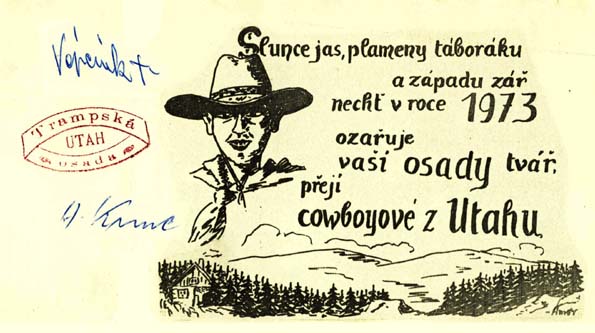 Slunce jas, plameny táboráku
a západu zář
nechť v roce 1973
ozařuje
vaší osady tvář,
přejí
cowboyové z Utahu.
Trampská
UTAH
osada